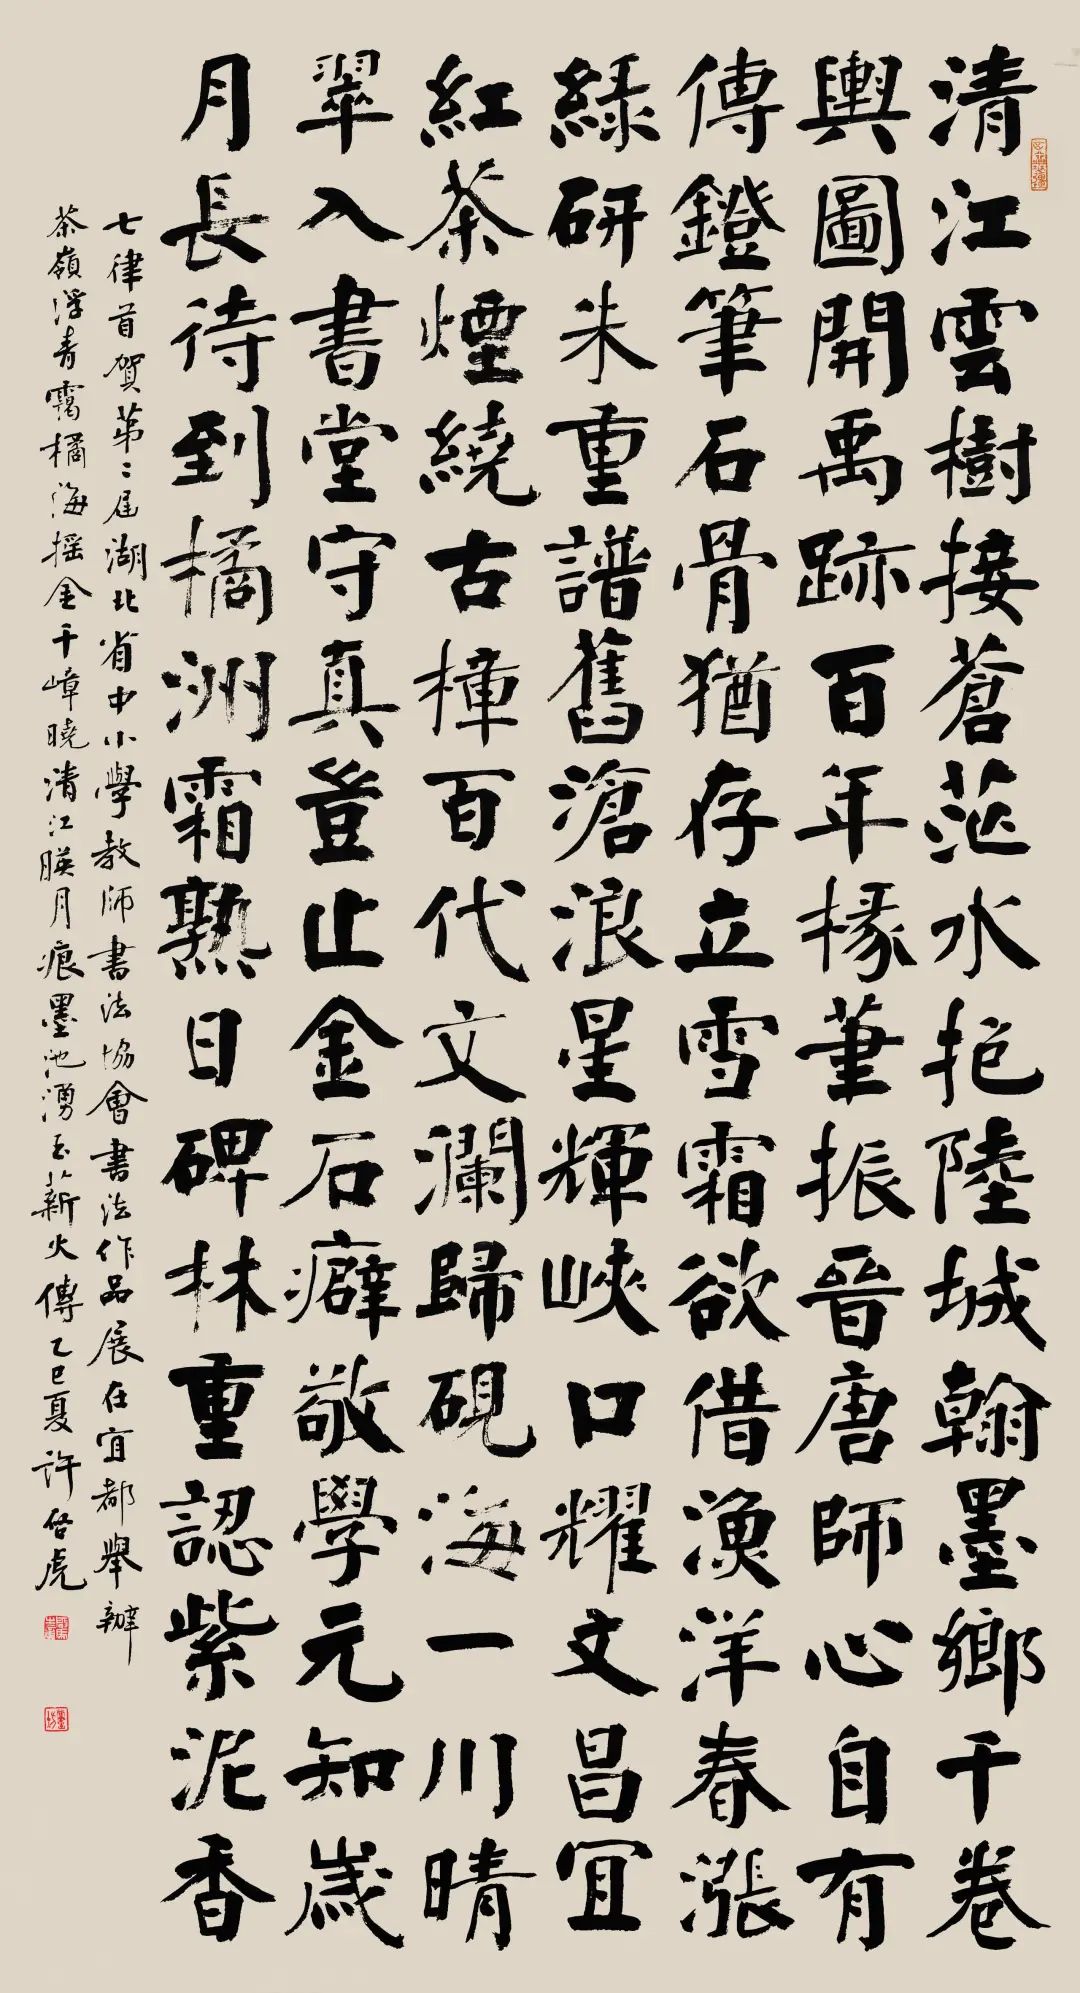 清江雲樹接蒼茫水抱陸城翰墨鄉千卷
輿圖開禹跡百年椽筆振晉唐師心自有
傳鐙筆石骨猶存立雪霜欲借漁洋春漲
綠研朱重譜舊滄浪星輝峽口耀文昌宜
紅茶煙繞古樟百代文瀾歸硯海一川晴
翠入書堂守真豈止金石癖敬學元知歲
月長待到橘洲霜熟日碑林重認紫泥香
七律首賀第二屆湖北省中小學教師書法協會書法作品展在宜都舉辦
茶嶺浮青靄橘海摇金千嶂曉清江暎月痕墨池湧玉薪火傳乙巳夏許啓虎